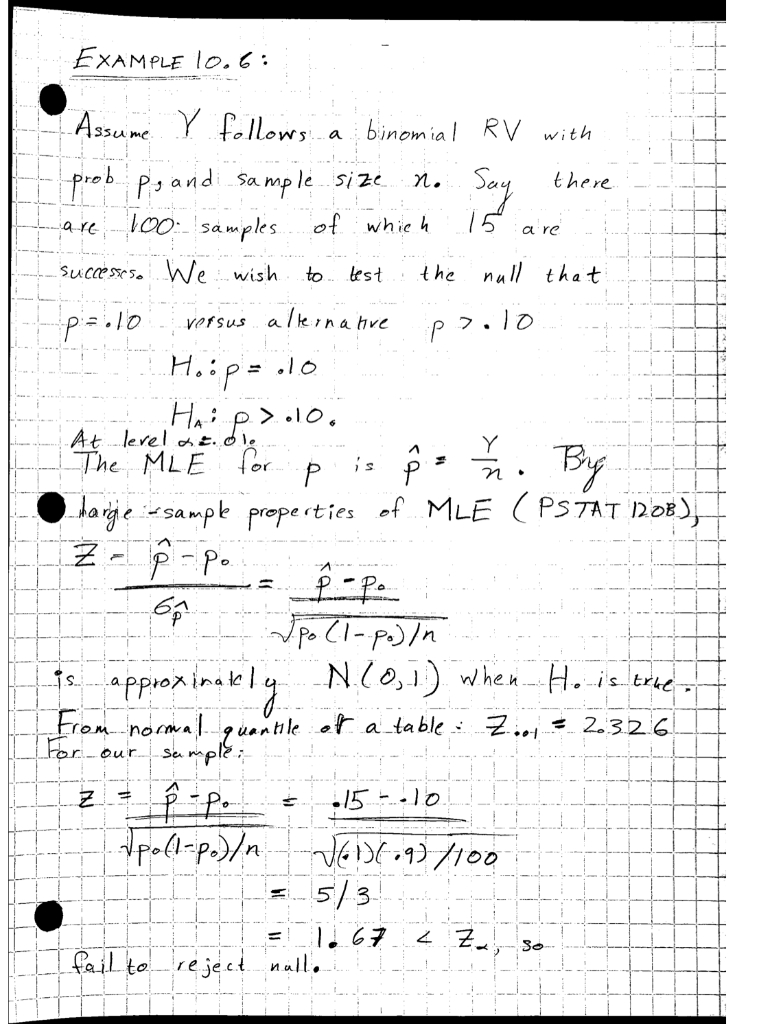 EXAMPLE 10.6:
Assume Y follows a binomial RV with
prob p, and sample size n. Say there
are 100 samples of which 15 are
successes. We wish to test the null that
p = .10 versus alternative p > .10
H₀: p = .10
H_A: p > .10.
At level α = .01.
The MLE for p is p̂ = Y/n. By
large-sample properties of MLE (PSTAT 120B),
Z = (p̂ - p₀)/σ_p̂ = (p̂ - p₀)/√(p₀(1-p₀)/n)
is approximately N(0,1) when H₀ is true.
From normal quantile of a table: Z.₀₁ = 2.326
For our sample:
z = (p̂ - p₀)/√(p₀(1-p₀)/n) = (.15 - .10)/√((.1)(.9)/100)
= 5/3
= 1.67 < Z_α, so
fail to reject null.